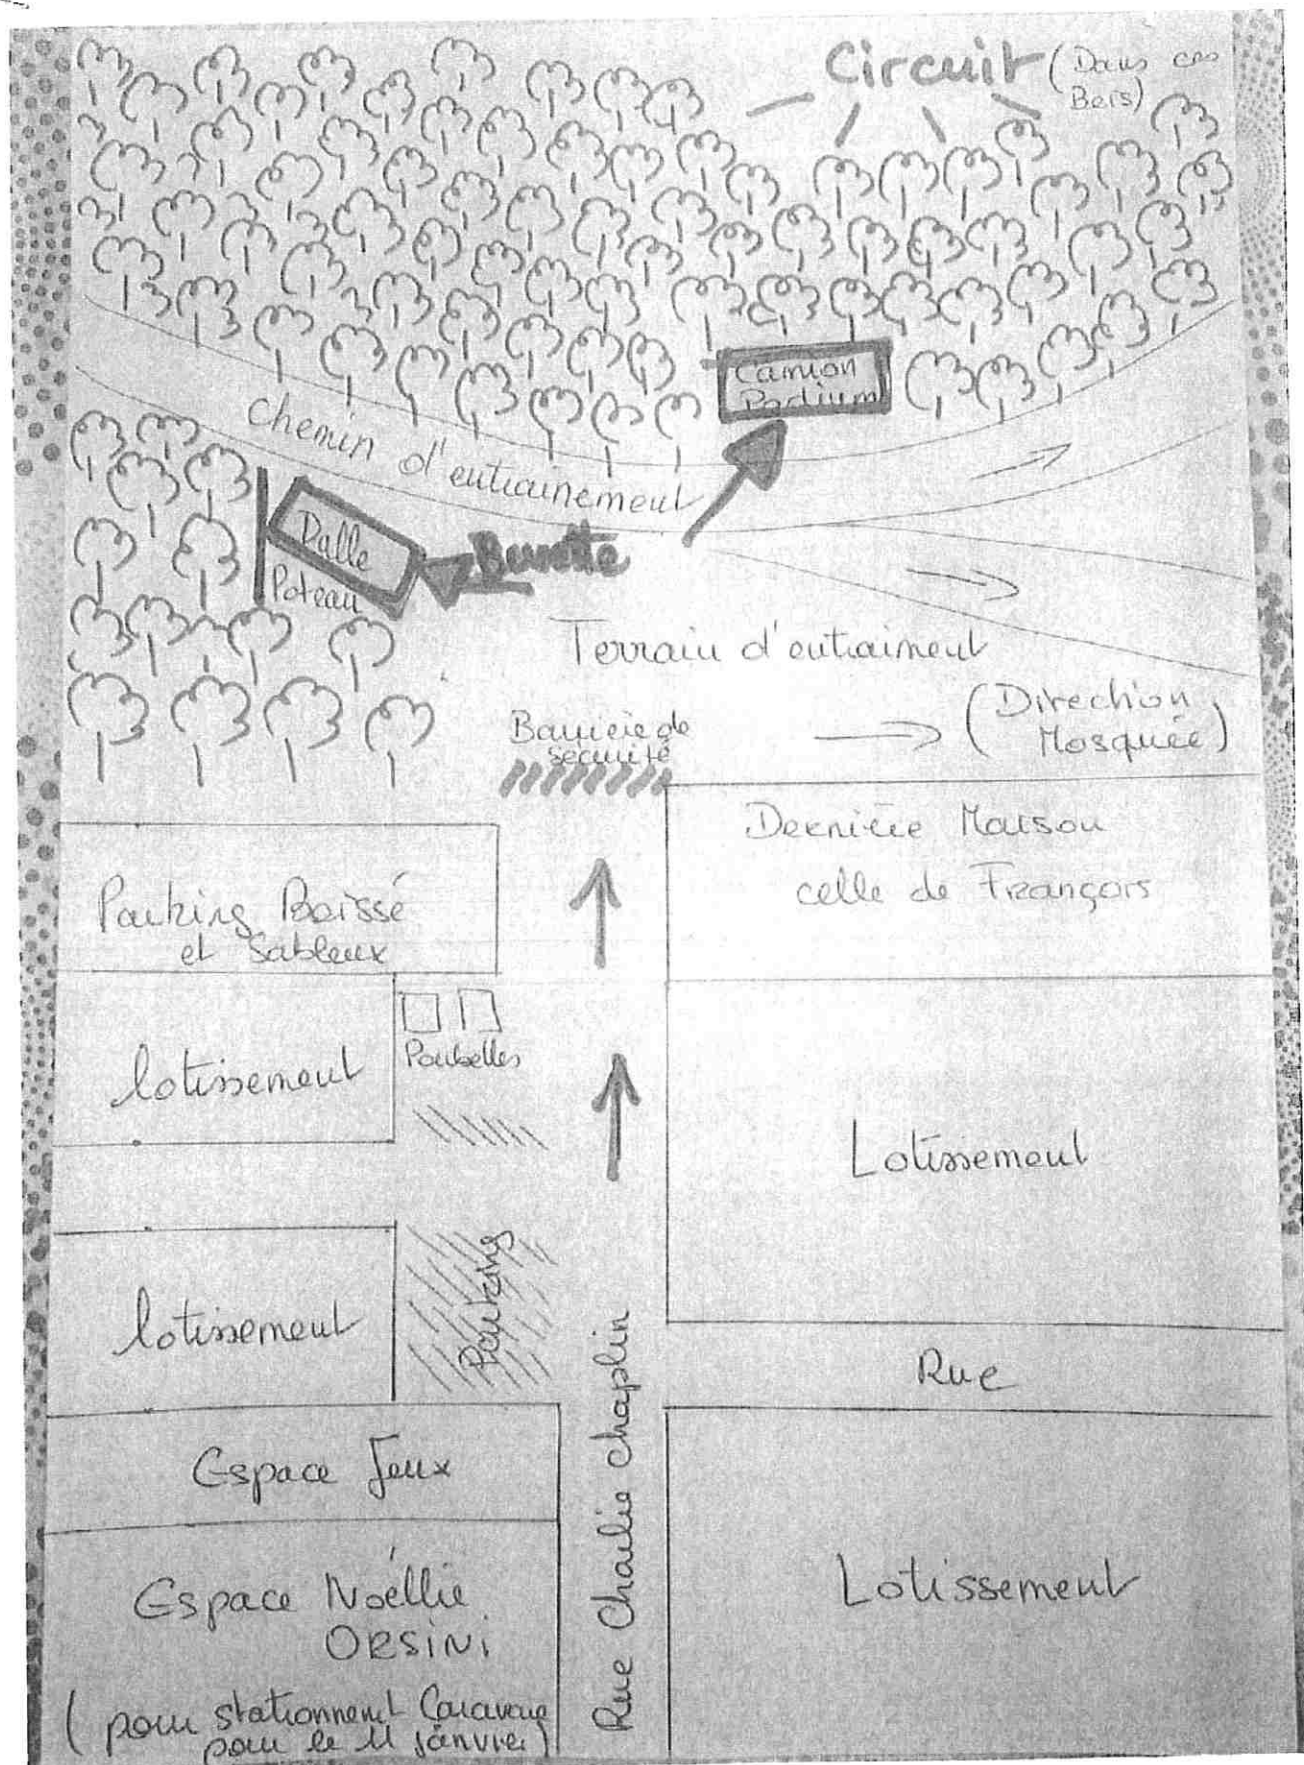 Circuit (Dans ces
Bois)
Camion
Podium
Chemin d'entrainement
Dalle
Poteau
Buvette
Terrain d'entraiment
Barrière de
sécurité
(Direction
Mosquée)
Dernière Maison
celle de François
Parking Boissé
et Sableux
Poubelles
lotissement
Lotissement
Parking
lotissement
Rue
Rue Charlie Chaplin
Espace Jeux
Espace Noëllie
ORSINI
Lotissement
(pour stationnent Caravane
pour le 11 janvier)